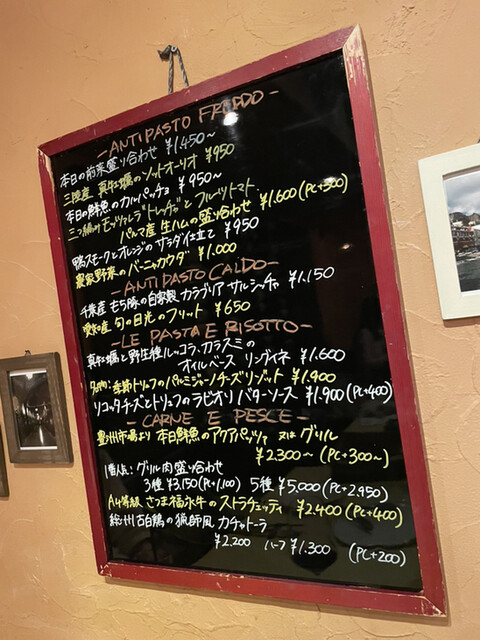 -ANTIPASTO FREDDO-
本日の前菜盛り合わせ ¥1,450~
三陸産 真牡蠣のソットオーリオ ¥950
本日の鮮魚のカルパッチョ ¥950~
三つ編みモッツァレラ"トレッチャ"とフルーツトマト
パルマ産 生ハムの盛り合わせ ¥1,600 (PC+300)
鴨スモークとオレンジのサラダ仕立て ¥950
農家野菜のバーニャカウダ ¥1,000
-ANTIPASTO CALDO-
千葉産 もち豚の自家製 カラブリア サルシッチャ ¥1,150
愛知産 旬の目光のフリット ¥650
-LE PASTA E RISOTTO-
真牡蠣と野生種ルッコラ、カラスミの
オイルベース リングイネ ¥1,600
季節トリュフのパルミジャーノチーズリゾット ¥1,900
リコッタチーズとトリュフのラビオリ バターソース ¥1,900 (PC+400)
-CARNE E PESCE-
豊州市場より 本日鮮魚のアクアパッツァ 又は グリル
¥2,300~ (PC+300~)
1番人気: グリル肉盛り合わせ
3種 ¥3,150 (PC+1,100) 5種 ¥5,000 (PC+2,950)
A4等級 さつま福永牛のストラチェッティ ¥2,400 (PC+400)
総州古白鶏の猟師風 カチャトーラ
¥2,200 ハーフ ¥1,300 (PC+200)